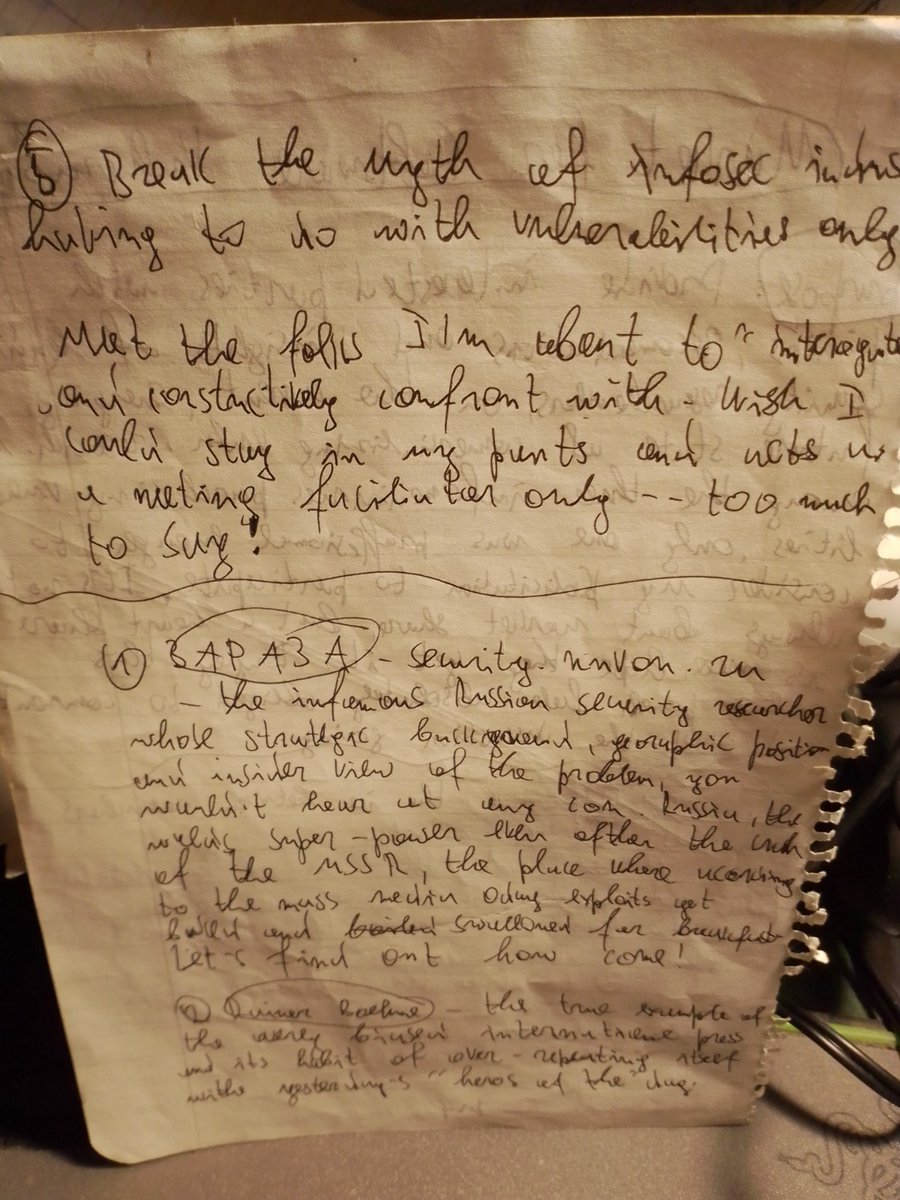 5 Break the myth of infosec indus
having to do with vulnerabilities only
Meet the folks I'm about to "interogate
and constuctively confront with - Wish I
could stay in my pants and acts as
a meting facilitator only -- too much
to say"!
(1) 3APA3A - security.nnov.ru
- the infamous Russian security researcher
whose strategic background, geographic position
and insider view of the problem, you
wouldn't hear at any con. Russia, the
super-power even after the end
of the USSR, the place where according
to the mass media 0day exploits get
and swallowed for breakfast
Let's find out how come!
(2) - the true example of
the biased international press
and its habit of over-repeating itself
with yesterday's "heros of the day.